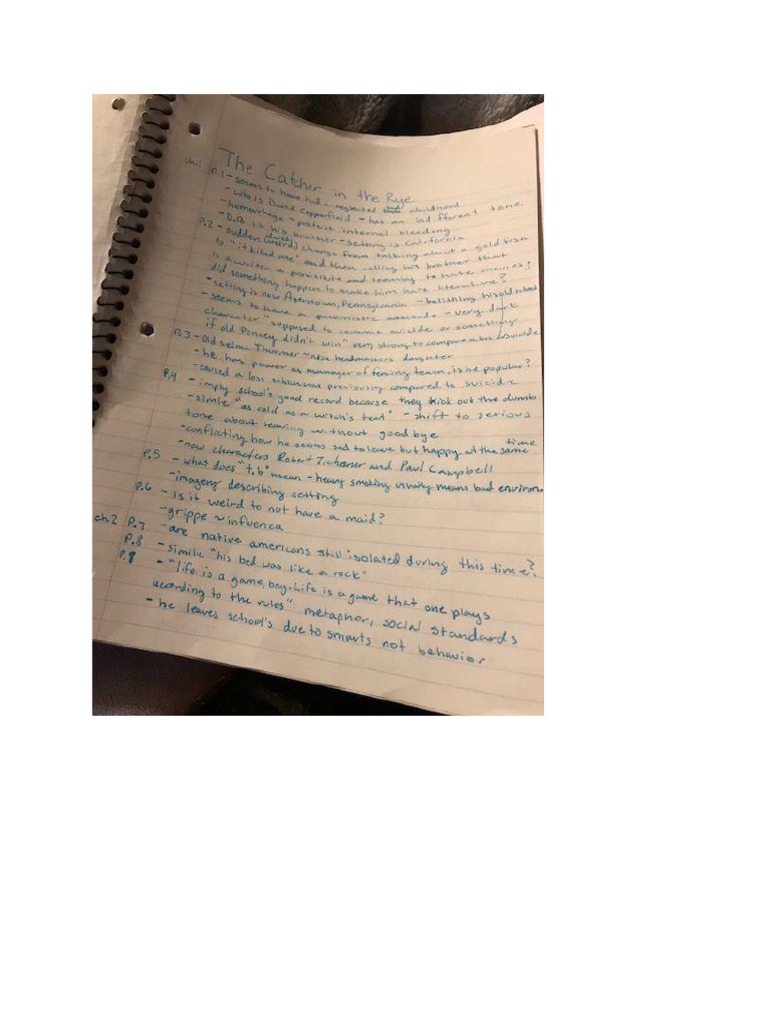 The Catcher in the Rye
ch.1 P.1 - seems to have had - neglected childhood
- who is David Copperfield - has an indifferent tone
- hemorrhage ~ profuse internal bleeding
- D.B is his brother - setting is California
P.2 - sudden (weird) change from talking about a gold fish
to "it killed me" and then calling his brother that
is a writer a prostitute and seeming to hate movies;
did something happen to make him hate literature?
- setting is now Agerstown, Pennsylvania - belittling his old school
- seems to have a pessimistic attitude - very dark
character "supposed to commit suicide or something
if old Pencey didn't win" very strong to compare a loss to suicide
P.3 - Old Selma Thurmer ~ headmasters daughter
- he has power as manager of fencing team, is he popular?
- caused a loss which was previously compared to suicide
P.4 - imply school's good record because they kick out the dumb
- simile "as cold as a witch's teat" - shift to serious
tone about leaving without goodbye
- conflicting how he seems sad to leave but happy at the same time
- new characters Robert Tichener and Paul Campbell
P.5 - what does "t.b" mean - heavy smoking usually means bad environ.
- imagery describing setting
P.6 - is it weird to not have a maid?
- grippe ~ influenza
ch.2 P.7 - are native americans still isolated during this time?
P.8 - simile "his bed was like a rock"
P.8 - "life is a game, boy. Life is a game that one plays
according to the rules" metaphor, social standards
- he leaves school's due to smarts not behavior